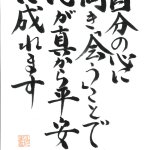 自分の心に
向き合うことで
心が真から平安
に成れます